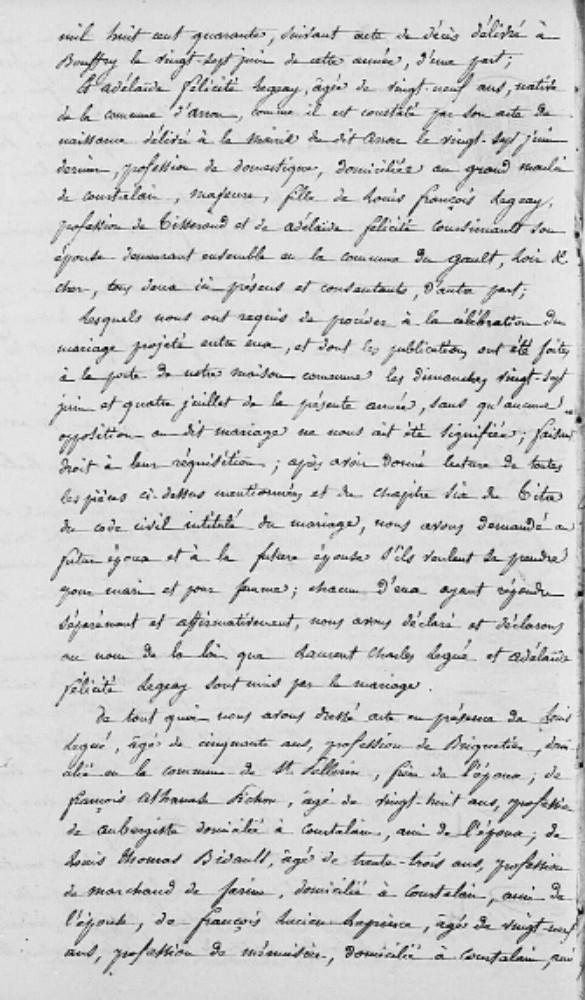 mil huit cent quarante, suivant acte de décès délivré à
Bouffry le vingt-sept juin de cette année, d'une part;
Et adélaïde félicité Legeay, âgée de vingt-neuf ans, native
de la commune d'arrou, comme il est constaté par son acte de
naissance délivré à la mairie du dit Arrou le vingt-sept juin
dernier, profession de domestique, domiciliée au grand moulin
de courtalain, majeure, fille de Louis françois Legeay,
profession de Tisserand et de adélaïde félicité son
épouse demeurant ensemble en la commune du gault, Loir &
cher, tous deux ici présens et consentants, d'autre part;
Lesquels nous ont requis de procéder à la célébration du
mariage projeté entre eux, et dont les publications ont été faites
à la porte de notre maison commune les dimanches vingt-sept
juin et quatre juillet de la présente année, sans qu'aucune
opposition au dit mariage ne nous ait été signifiée; faisant
droit à leur réquisition; après avoir donné lecture de toutes
les pièces ci-dessus mentionnées et du chapitre six du Titre
du code civil intitulé du mariage, nous avons demandé au
futur époux et à la future épouse s'ils veulent se prendre
pour mari et pour femme; chacun d'eux ayant répondu
séparément et affirmativement, nous avons déclaré et déclarons
au nom de la loi que Laurent Charles Legué et adélaïde
félicité Legeay sont unis par le mariage.
De tout quoi nous avons dressé acte en présence de Louis
Legué, âgé de cinquante ans, profession de Briquetier, domi
cilié en la commune de St. Pellerin, frère de l'époux; de
françois Athanase Pichon, âgé de vingt-huit ans, profession
de aubergiste domicilié à courtalain, ami de l'époux; de
Louis Thomas Bidault, âgé de trente-trois ans, profession
de marchand de farine, domicilié à courtalain, ami de
l'épouse, de françois Lucien Leprince, âgé de vingt-neuf
ans, profession de ménuisier, domicilié à courtalain, ami